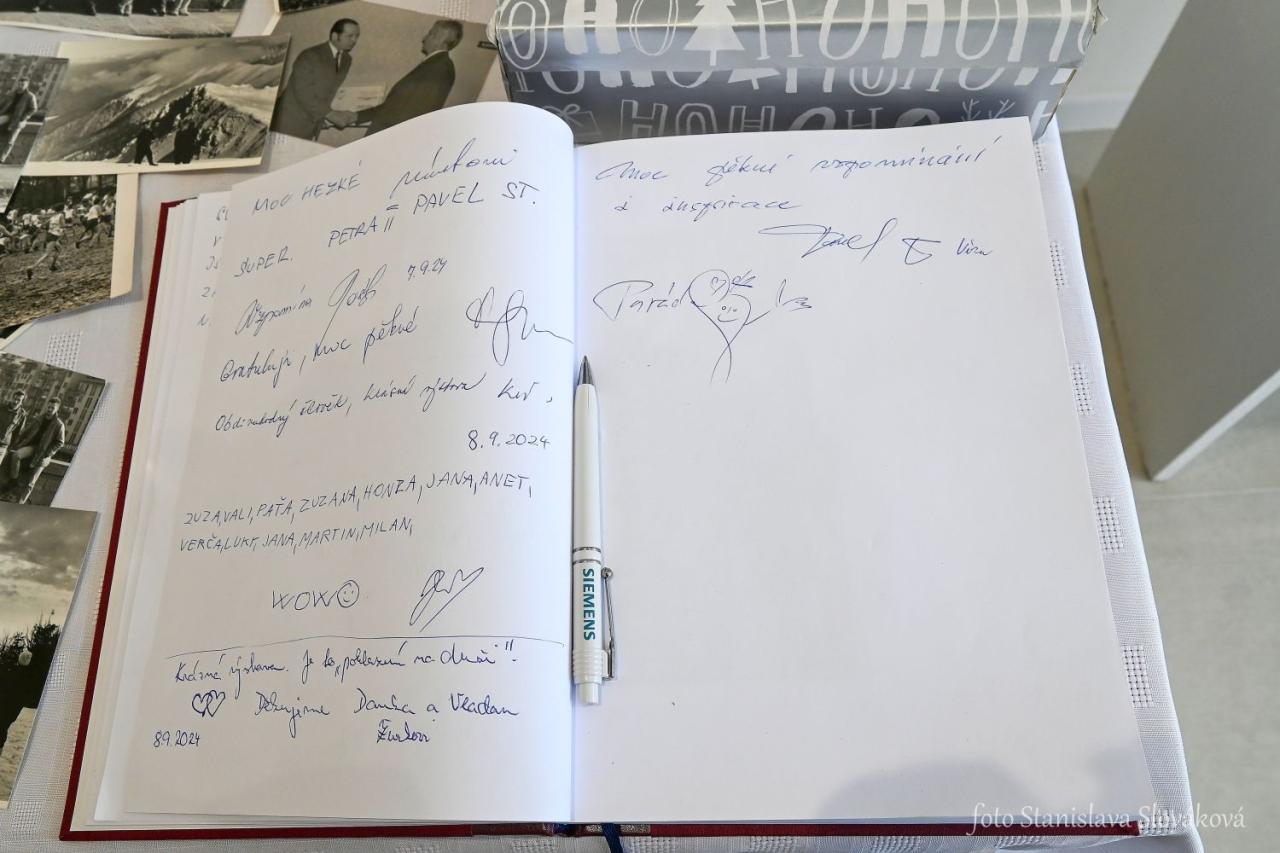 HOHOHO
HOHO
MOC HEZKÉ
SUPER. PETRA II PAVEL ST.
Vzpomína 7.9.24
Gratuluji, moc pěkné
Obdivuhodný člověk, krásná výstava
8.9.2024
ZUZA, VALI, PAŤA, ZUZANA, HONZA, JANA, ANET,
VERČA, LUKY, JANA, MARTIN, MILAN,
WOW
Krásná výstava. Je to „pohlazení na duši".
Děkujeme Danka a Vladan
8.9.2024
Moc pěkné vzpomínání
i inspirace
Pavel
Parád
SIEMENS
foto Stanislava Slováková